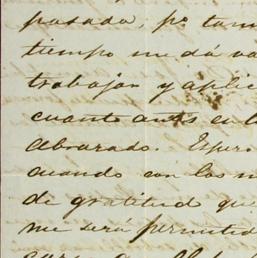 pasada, po tam
tiempo me dá va
trabajar y aplic
cuanto antes en l
abrazado. Esper
cuando con los m
de gratitud que
me será permitid